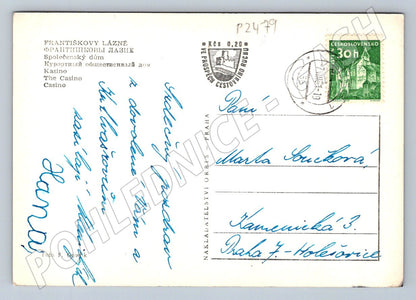 P2479
FRANTIŠKOVY LÁZNĚ
ФРАНТИШКОВЫ ЛАЗНЕ
Společenský dům
Курортный общественный дом
Kasino
The Casino
Casino
Kčs 0,20
VE PROSPĚCH CESTOVNÍHO RUCHU
ČESKOSLOVENSKO
30h
Srdečný pozdrav
z dovolené Vám a
zasílají
Hana
NAKLADATELSTVÍ ORBIS, PRAHA
Paní
Marta Součková,
Kamenická 3.
Praha 7-Holešovice
POHLEDNICE